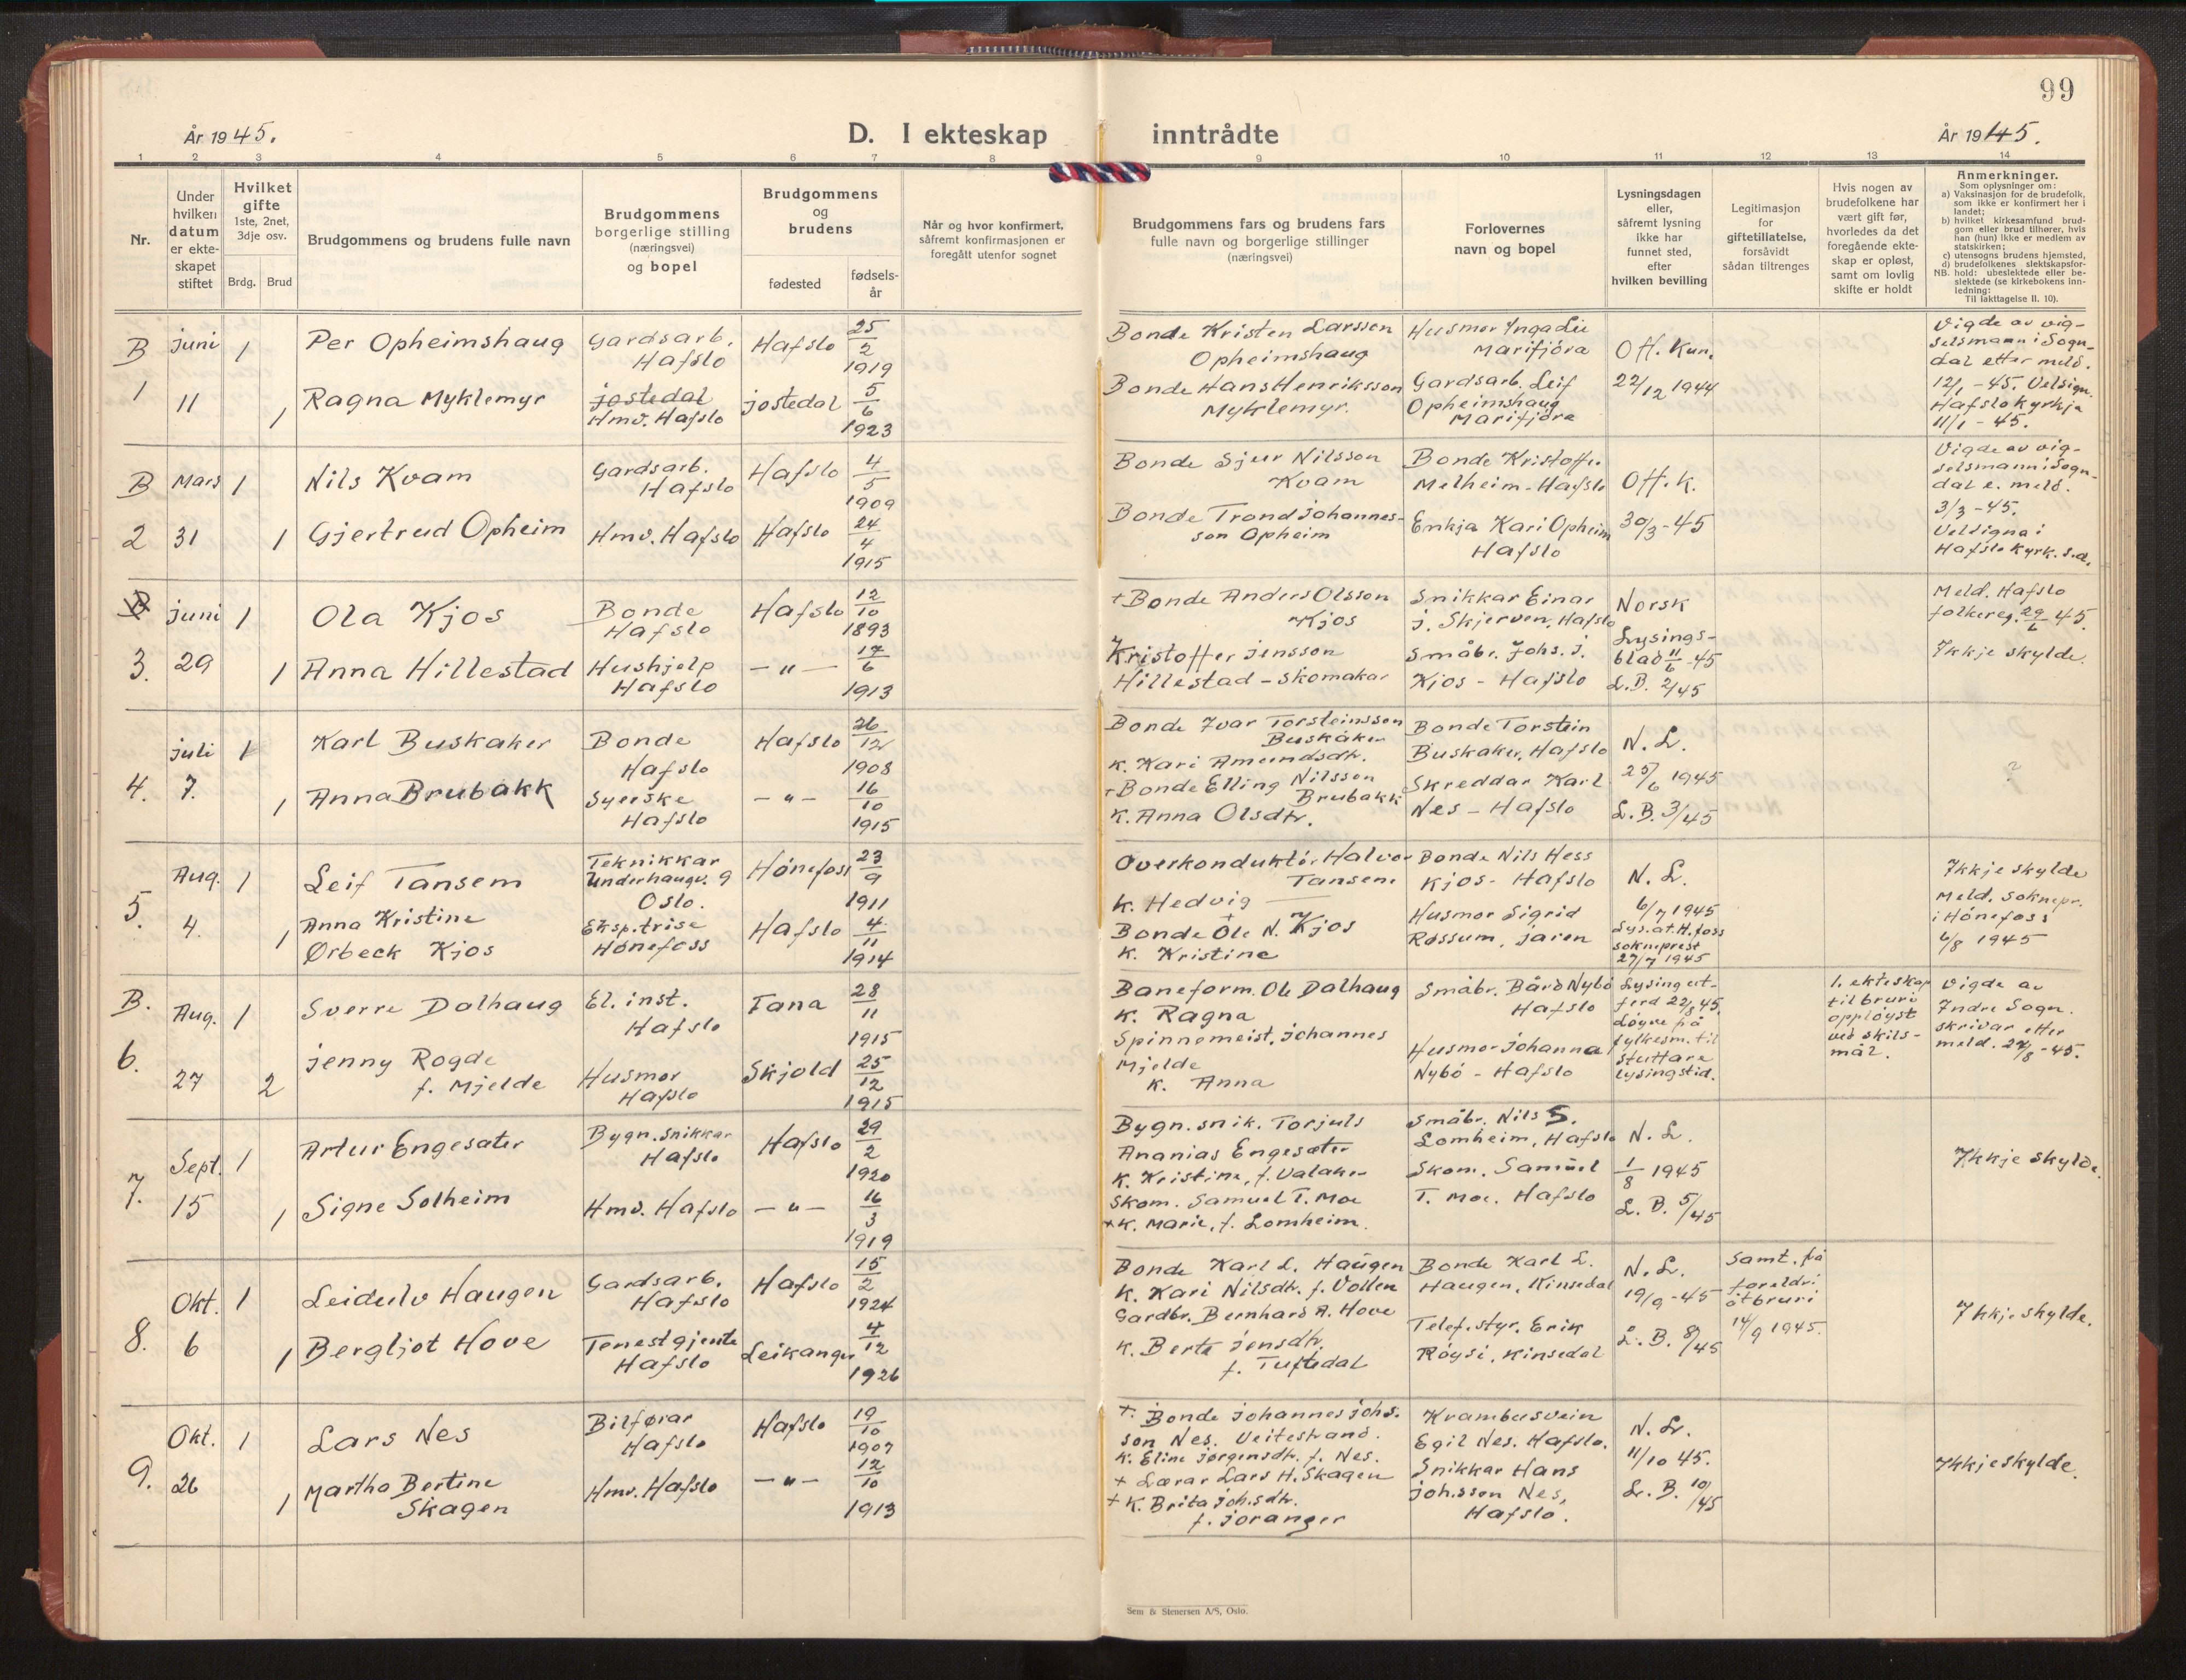 99
År 1945.
D. I ekteskap inntrådte
År 1945.
1 2 3 4 5 6 7 8 9 10 11 12 13 14
Nr.
Under
hvilken
datum
er ekte-
skapet
stiftet
Hvilket
gifte
1ste, 2net,
3dje osv.
Brdg. Brud
Brudgommens og brudens fulle navn
Brudgommens
borgerlige stilling
(næringsvei)
og bopel
Brudgommens
og
brudens
fødested
fødsels-
år
Når og hvor konfirmert,
såfremt konfirmasjonen er
foregått utenfor sognet
Brudgommens fars og brudens fars
fulle navn og borgerlige stillinger
(næringsvei)
Forlovernes
navn og bopel
Lysningsdagen
eller,
såfremt lysning
ikke har
funnet sted,
efter
hvilken bevilling
Legitimasjon
for
giftetillatelse,
forsåvidt
sådan tiltrenges
Hvis nogen av
brudefolkene har
vært gift før,
hvorledes da det
foregående ekte-
skap er opløst,
samt om lovlig
skifte er holdt
Anmerkninger.
Som oplysninger om:
a) Vaksinasjon for de brudefolk,
som ikke er konfirmert her i
landet;
b) hvilket kirkesamfund brud-
gom eller brud tilhører, hvis
han (hun) ikke er medlem av
statskirken;
c) utensogns brudens hjemsted,
d) brudefolkenes slektskapsfor-
NB. hold: ubeslektede eller be-
slektede (se kirkebokens inn-
ledning:
Til iakttagelse II. 10).
B
1
juni
11
1
Per Opheimshaug
Gardsarb.
Hafslo
Hafslo
25
2
1919
1
Ragna Myklemyr
jostedal
Hmv. Hafslo
jostedal
5
6
1923
Bonde Kristen Larssen
Opheimshaug
Bonde Hans Henriksson
Myklemyr.
Husmor Inga Lie
Marifjöra
Gardsarb. Leif
Opheimshaug
Marifjöra
Off. Kun.
22/12 1944
Vigde av vig-
selsmann i Sogn-
dal etter meld.
12/1 - 45. Velsign.
Hafslo Kyrkja
11/1 - 45.
B
2
Mars
31
1
Nils Kvam
Gardsarb.
Hafslo
Hafslo
4
5
1909
1
Gjertrud Opheim
Hmv. Hafslo
Hafslo
24
4
1915
Bonde Sjur Nilsson
Kvam
Bonde Trond Johannes-
son Opheim
Bonde Kristoffer
Melheim - Hafslo
Enkja Kari Opheim
Hafslo
Off. k.
30/3 - 45
Vigde av vig-
selsmann i Sogn-
dal e. meld.
3/3 - 45.
Velsigna i
Hafslo Kyrk. s.d.
B
3.
juni
29
1
Ola Kjos
Bonde
Hafslo
Hafslo
12
10
1893
1
Anna Hillestad
Hushjelp
Hafslo
- " -
17
6
1913
+ Bonde Anders Olsson
Kjos
Kristoffer Jensson
Hillestad - Skomakar
Snikkar Einar
J. Skjerven, Hafslo
Småbr. Johs. J.
Kjos - Hafslo
Norsk
Lysings-
blad 11/6 - 45
L.B. 2/45
Meld. Hafslo
folkereg. 29/6 45.
Ikkje skylde.
4.
juli
7.
1
Karl Buskaker
Bonde
Hafslo
Hafslo
26
12
1908
1
Anna Brubakk
Syerske
Hafslo
- " -
16
10
1915
Bonde Ivar Torsteinsson
Buskaker
K. Kari Amundsdtr.
+ Bonde Elling Nilsson
Brubakk
K. Anna Olsdtr.
Bonde Torstein
Buskaker, Hafslo
Skreddar Karl
Nes - Hafslo
N. L.
25/6 1945
L.B. 3/45
?
5.
Aug.
4.
1
Leif Tansem
Teknikkar
Underhaugv. 9
Oslo.
Hønefoss
23
9
1911
1
Anna Kristine
Ørbeck Kjos
Eksp.trise
Hønefoss
Hafslo
4
11
1914
Overkonduktør Halvor
Tansem
K. Hedvig
+
Bonde Ole N. Kjos
K. Kristine
Bonde Nils Hess
Kjos - Hafslo
Husmor Sigrid
Røssum, Jaren
N. L.
6/7 1945
Lys. at. H.foss
sokneprest
27/7 1945
Ikkje skylde
Meld. soknepr.
i Hönefoss
6/8 1945
B.
6.
Aug.
27
1
Sverre Dalhaug
El. inst.
Hafslo
Tana
28
11
1915
2
Jenny Rogde
f. Mjelde
Husmor
Hafslo
Skjold
25
12
1915
Baneform. Ole Dalhaug
K. Ragna
Spinnemeist. Johannes
Mjelde
K. Anna
Småbr. Bård Nybö
Hafslo
Husmor Johanna
Nybö - Hafslo
Lysing ut-
ferd 22/8 45.
Løyve på
fylkesm. til
stuttare
lysingstid.
1. ekteskap
til bruri
opployst
ved skils-
mål.
Vigde av
Indre Sogn.
skrivar etter
meld. 27/8 - 45.
7.
Sept.
15
1
Artur Engesæter
Bygn.snikkar
Hafslo
Hafslo
29
2
1920
1
Signe Solheim
Hmv. Hafslo
- " -
16
3
1919
Bygn.snik. Torjuls
Ananias Engesæter
K. Kristine, f. Valaker
Skom. Samuel T. Moe
+ K. Marie, f. Lomheim.
Småbr. Nils S.
Lomheim, Hafslo
Skom. Samuel
T. Moe. Hafslo
N. L.
1/8 1945
L. B. 5/45
Ikkje skylde.
8.
Okt.
6
1
Leidulv Haugen
Gardsarb.
Hafslo
Hafslo
15
2
1924
1
Bergljot Hove
Tenestgjente
Hafslo
Leikanger
4
12
1926
Bonde Karl L. Haugen
K. Kari Nilsdtr. f. Vollen
Gardbr. Bernhard A. Hove
K. Berte Jensdtr.
f. Tuftedal
Bonde Karl L.
Haugen, Kinsedal
Telef.styr. Erik
Röysi, Kinsedal
N. L.
19/9 - 45
L. B. 8/45
Samt. frå
foreldri
åt bruri
14/9 1945.
Ikkje skylde.
9.
Okt.
26
1
Lars Nes
Bilførar
Hafslo
Hafslo
19
10
1907
1
Martha Bertine
Skagen
Hmv. Hafslo
- " -
12
10
1913
+. Bonde Johannes Johs.
son Nes. Veitestrand.
K. Eline Jørgensdtr. f. Nes.
+ Lærar Lars H. Skagen
+ K. Brita Joh.sdtr.
f. Joranger
Krambusvein
Egil Nes. Hafslo.
Snikkar Hans
Joh.sson Nes,
Hafslo.
N. L.
11/10 45.
L. B. 10/45
Ikkje skylde.
Sem & Stenersen A/S, Oslo.